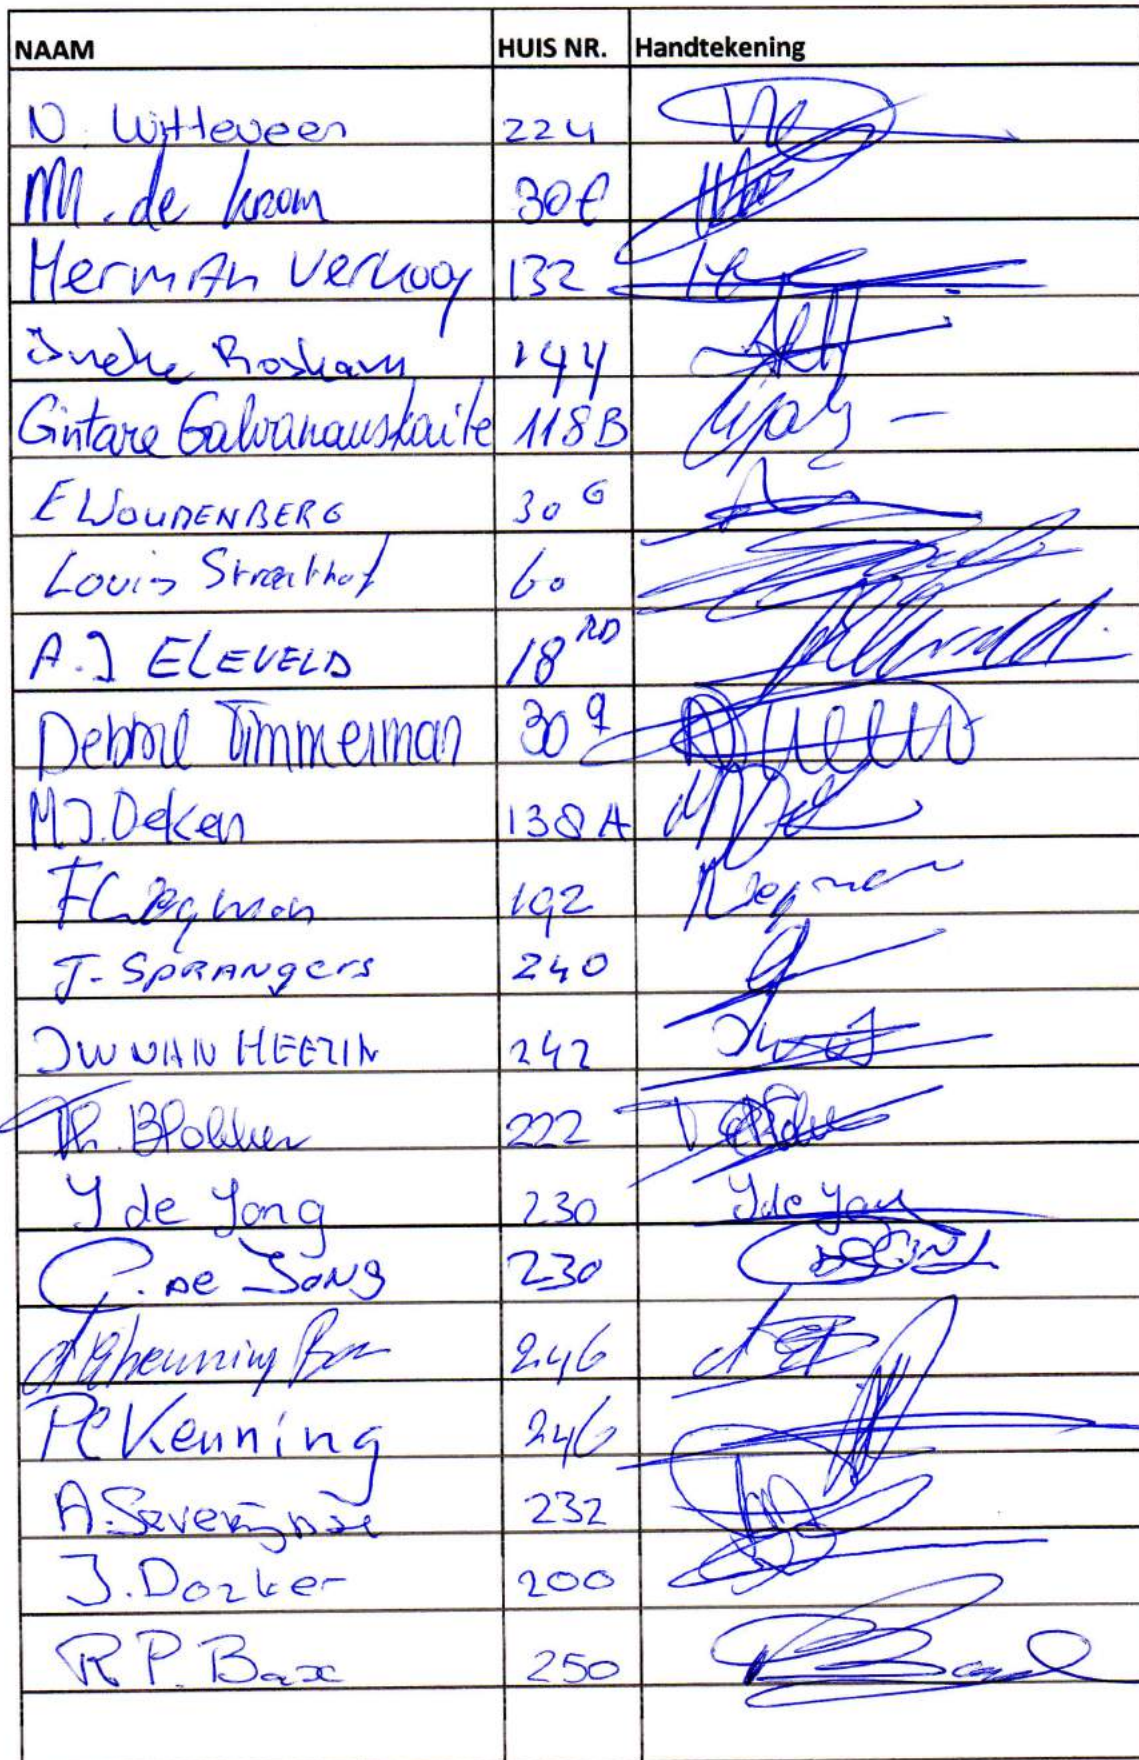 NAAM HUIS NR. Handtekening
N. Witteveen 224
M. de Krom 30E
Herman Verkooy 132
Ineke Roskam 144
Gintare Galvanauskaite 118B
E WOUDENBERG 30 G
Louis Straathof 60
A.J ELEVELD 18 RD
Debbie Timmerman 30g
M.J. Deken 138A
192
J. SPRANgers 240
JW VAN HEEZIK 242
Th. Blokker 222
Y de Jong 230 Y de Jong
C. de JONG 230
246
PC Kenning 246
A. Severijnse 232
J. Dozker 200
R P. Bax 250